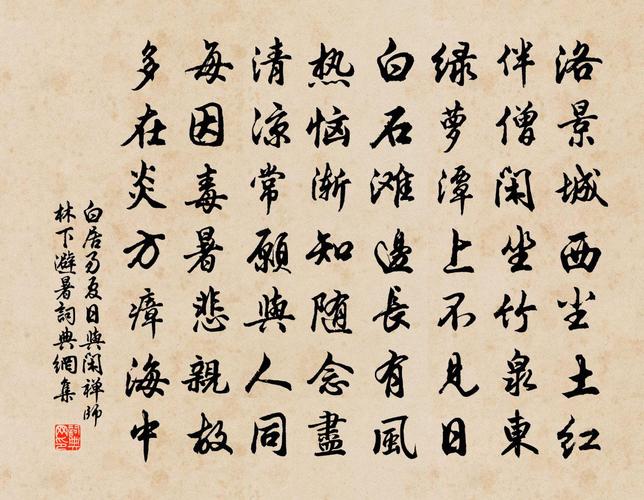 洛景城西尘土红
伴僧闲坐竹泉東
绿萝潭上不見日
白石滩邊長有風
热恼渐知随念盡
清凉常願與人同
每因毒暑悲親故
多在炎方瘴海中
白居易夏日與閑禅師
林下避暑詞典網集